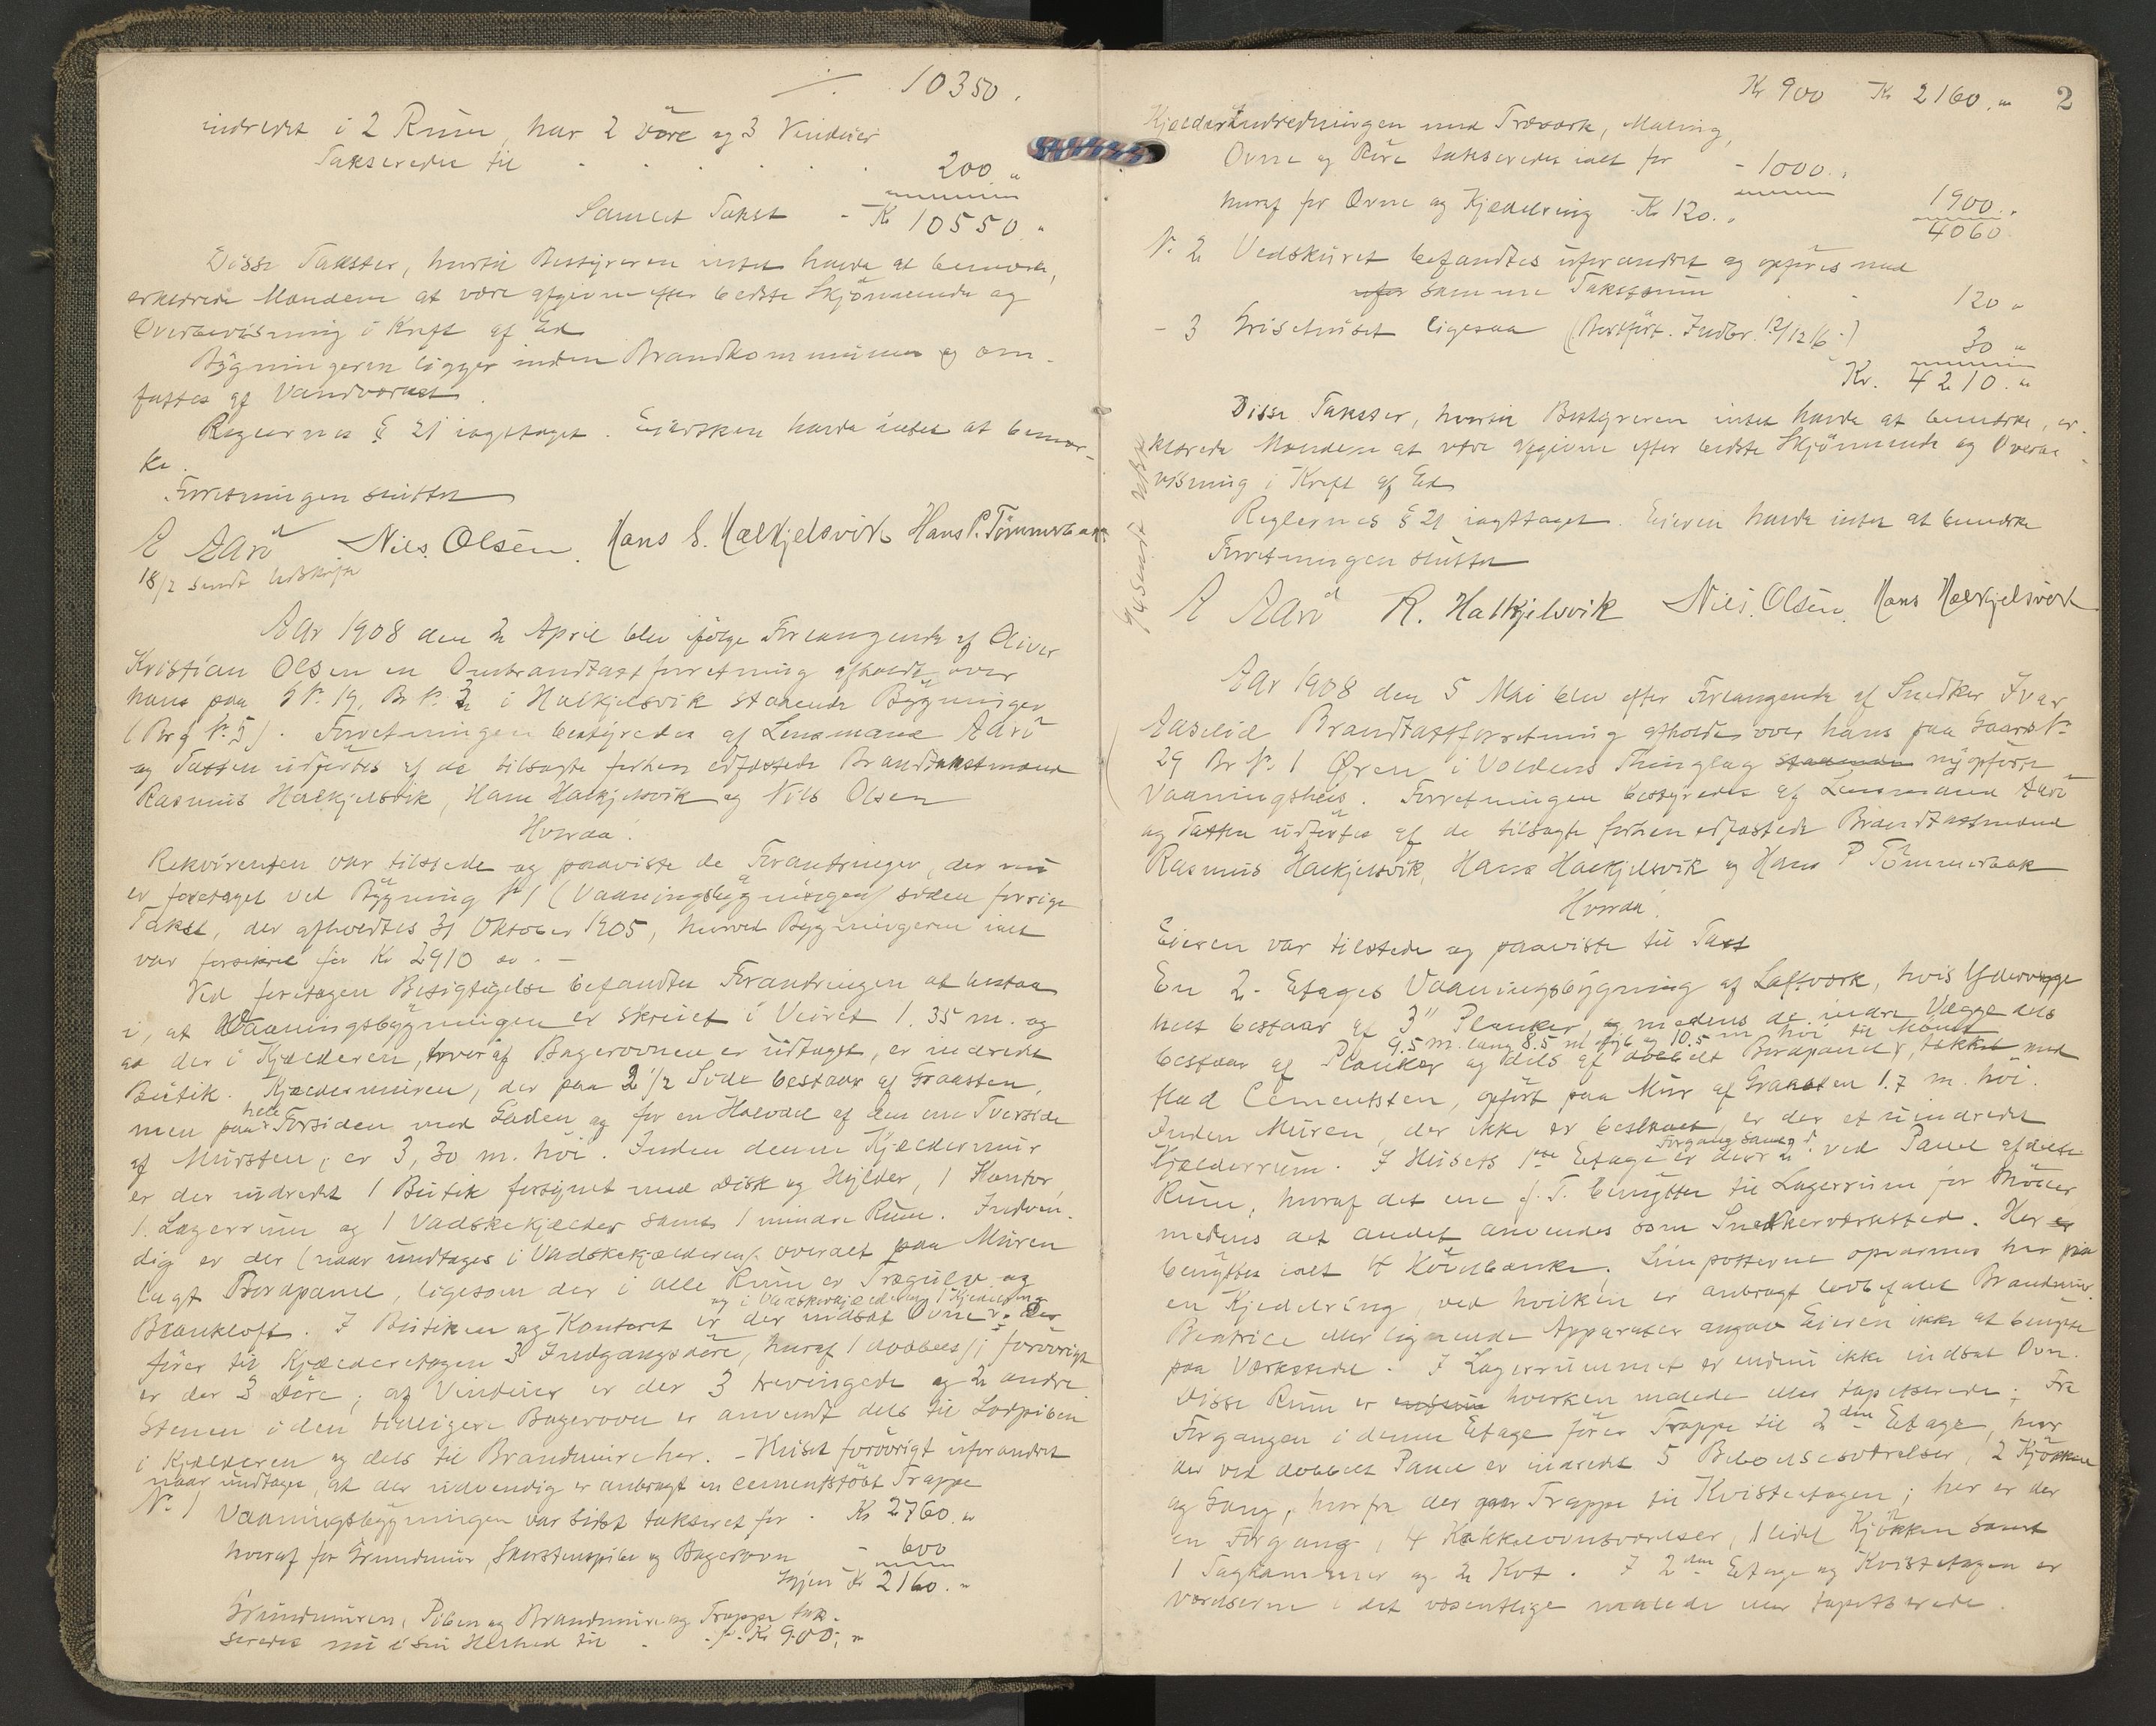 ·/· 10350.
indredet i 2 Rum, har 2 Döre og 3 Vinduer
Takseredes til . . . . . 200 "
Samlet Takst - Kr 10550 "
Disse Takster, hvortil Bestyreren intet havde at bemærke,
erklærede Mændene at være afgivne efter bedste Skjönnende og
Overbevisning i Kraft af Ed
Bygningerne ligger inden Brandkommunen og om-
fattes af Vandværket.
Reglernes § 21 iagttaget. Eiersken havde intet at bemær-
ke.
Forretningen sluttet
E Aarö Nils. Olsen. Hans S. Halkjelsvik Hans P. Tömmerbak
18/2 sendt Udskrift
Aar 1908 den 2 April blev ifölge Forlangende af Oliver
Kristian Olsen en Ombrandtaxtforretning afholdt over
hans paa G No. 19, Br No. 2 i Halkjelsvik staaende Bygninger
(Brg No. 5). Forretningen bestyredes af Lensmand Aarö
og Taxten udfördes af de tilsagte forhen edfæstede Brandtakstmænd
Rasmus Halkjelsvik, Hans Halkjelsvik og Nils Olsen
Hvorda:
Rekvirenten var tilstede og paaviste de Forandringer, der nu
er foretaget ved Bygning No 1 (Vaaningsbygningen) siden forrige
Takst, der afholdtes 31 Oktober 1905, hvorved Bygningerne ialt
var forsikret for Kr 2910 00. -
Ved foretagen Besigtigelse befandtes Forandringen at bestaa
i, at Vaaningsbygningen er skruet i Veiret 1.35 m. og
at der i Kjælderen, hvoraf Bagerovnen er udtaget, er indredet
Butik. Kjældermuren, der paa 2 1/2 Side bestaar af Graasten,
men paa hele Forsiden mod Gaden og for en Halvdel af den ene Tverside
af Mursten, er 3,30 m. höi. Inden denne Kjældermur
er der indredet 1 Butik forsynet med Disk og Hylder, 1 Kontor,
1 Lagerrum og 1 Vadskekjælder samt 1 mindre Rum. Indven-
dig er der (naar undtages i Vadskekjælderen) overalt paa Muren
lagt Bordpanel, ligesom der i alle Rum er Trægulv og
Blankloft. I Butiken og Kontoret er der indsat Ovne og i Vadskekjælderen 1 Kjedelring. Der
förer til Kjælderetagen 3 Indgangsdöre, hvoraf 1 dobbelt; forövrigt
er der 3 Döre; af Vinduer er der 3 trevingede og 2 andre
Stenen i den tidligere Bagerovn er anvendt dels til Lodpiben
i Kjælderen og dels til Brandmure her. - Huset forövrigt uforandret
naar undtages, at der udvendig er anbragt en cementstöbt Trappe
No. 1 Vaaningsbygningen var sidst takseret for . Kr 2760. "
hvoraf for Grundmur, Skorstenspibe og Bagerovn - 600
Igjen Kr 2160. "
Grundmuren, Piben og Brandmure og Trappe tak-
seredes nu i sin Helhed til . ./. Kr 900, "
Kr 900 Kr 2160. " 2
Kjælderindredningen med Træværk, Maling,
Ovne og Röre takseredes ialt for - 1000. "
hvoraf for Ovne og Kjedelring Kr 120. " 1900. "
4060
No. 2 Vedskuret befandtes uforandret og opföres med
ufor samme Takstsum . . 120 "
- 3 Grisehuset ligesaa (Bortfört. Indbr. 12/12 16.) 30 "
Kr. 4210. "
Disse Takster, hvortil Bestyreren intet havde at bemærke, er-
klærede Mændene at være afgivne efter bedste Skjönnende og Overbe-
visning i Kraft af Ed
Reglernes § 21 iagttaget. Eieren havde intet at bemærke
Forretningen sluttet
E Aarö R. Halkjelsvik Nils. Olsen. Hans Halkjelsvik
Aar 1908 den 5 Mai blev efter Forlangende af Snedker Ivar
Aaslid Brandtaxtforretning afholdt over hans paa Gaards No
29 Br No. 1 Øren i Voldens Thinglag staaende nyopförte
Vaaningshus. Forretningen bestyredes af Lensmand Aarö
og Taxten udförtes af de tilsagte forhen edfæstede Brandtaxtmænd
Rasmus Halkjelsvik, Hans Halkjelsvik og Hans P Tömmerbak
Hvorda:
Eieren var tilstede og paaviste til Taxt
En 2. Etages Vaaningsbygning af Laftværk, hvis Ydervægge
helt bestaar af 3" Planker, og medens de indre Vægge dels
bestaar af Planker og dels af dobbelt Bordpanel, 9.5 m lang 8.5 m dyb og 10.5 m höi til Mönet, takket med
flad Cementsten, opfört paa Mur af Graasten 1.7 m. höi.
Inden Muren, der ikke er beslaaet, er der et uindredet
Kjælderrum. I Husets 1ste Etage er der Forgang samt 2 ved Panel afdelte
Rum, hvoraf det ene f. T. benyttes til Lagerrum for Möbler
medens det andet anvendes som Snedkerværksted. Her er
benyttes ialt 4 Hövelbænke. Limpotterne opvarmes her paa
en Kjedelring, ved hvilken er anbragt lovbefalet Brandmur.
Beatrice eller lignende Apparater angav Eieren ikke at benytte
paa Værkstedet. I Lagerrummet er endnu ikke indsat Ovn.
Disse Rum er endnu hverken malede eller tapetserede. Fra
Forgangen i denne Etage förer Trappe til 2den Etage, hvor
der ved dobbelt Panel er indredet 5 Beboelsesværelser, 2 Kjökken
og Gang, hvorfra der gaar Trappe til Kvistetagen; her er der
en Forgang, 4 Kakkelovnsværelser, 1 lidet Kjökken samt
1 Tagkammer og 2 Kot. I 2den Etage og Kvistetagen er
Værelserne i det væsentlige malede eller tapetserede.